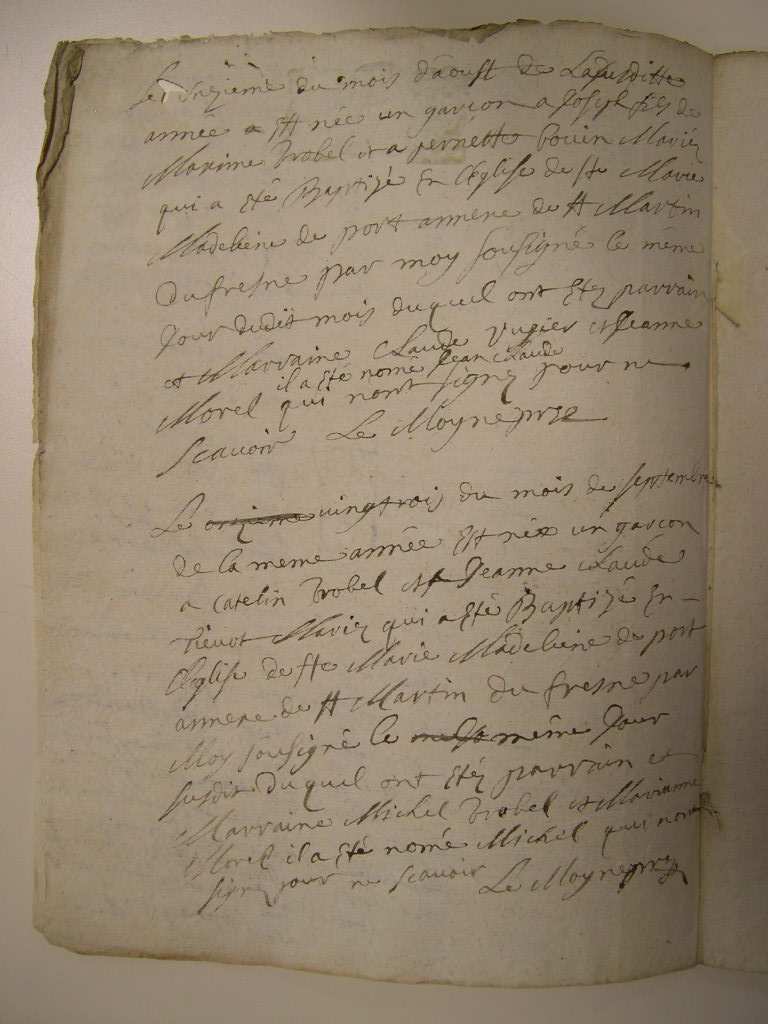 Le unzieme du mois d'aoust de Laditte
année a Ett née un garçon a Joseph fils de
Maxime Trobel et a pernette bouin Mariéz
qui a Eté Baptizé En l'Eglise de ste Marie
Madeleine de port annexe de st Martin
Dufresne par moy sousigné le même
Jour dudit mois duquel ont Etéz parrain
et Marraine Claude et Jeanne
il a Eté nomé Jean Claude
Morel qui nont signéz pour ne
scavoir Le Moyne ptre
Le onzieme vingtrois du mois de septembre
de la meme année Est née un garçon
a Catelin Trobel et a Jeanne Claude
Mariez qui a Eté Baptizé En
l'Eglise de ste Marie Madeleine de port
annexe de st Martin du fresne par
Moy sousigné le même Jour
susdit Duquel ont Etéz parrain et
Marraine Michel Trobel et Marianne
Morel il a Eté nomé Michel qui nont
signéz pour ne scavoir Le Moyne ptre